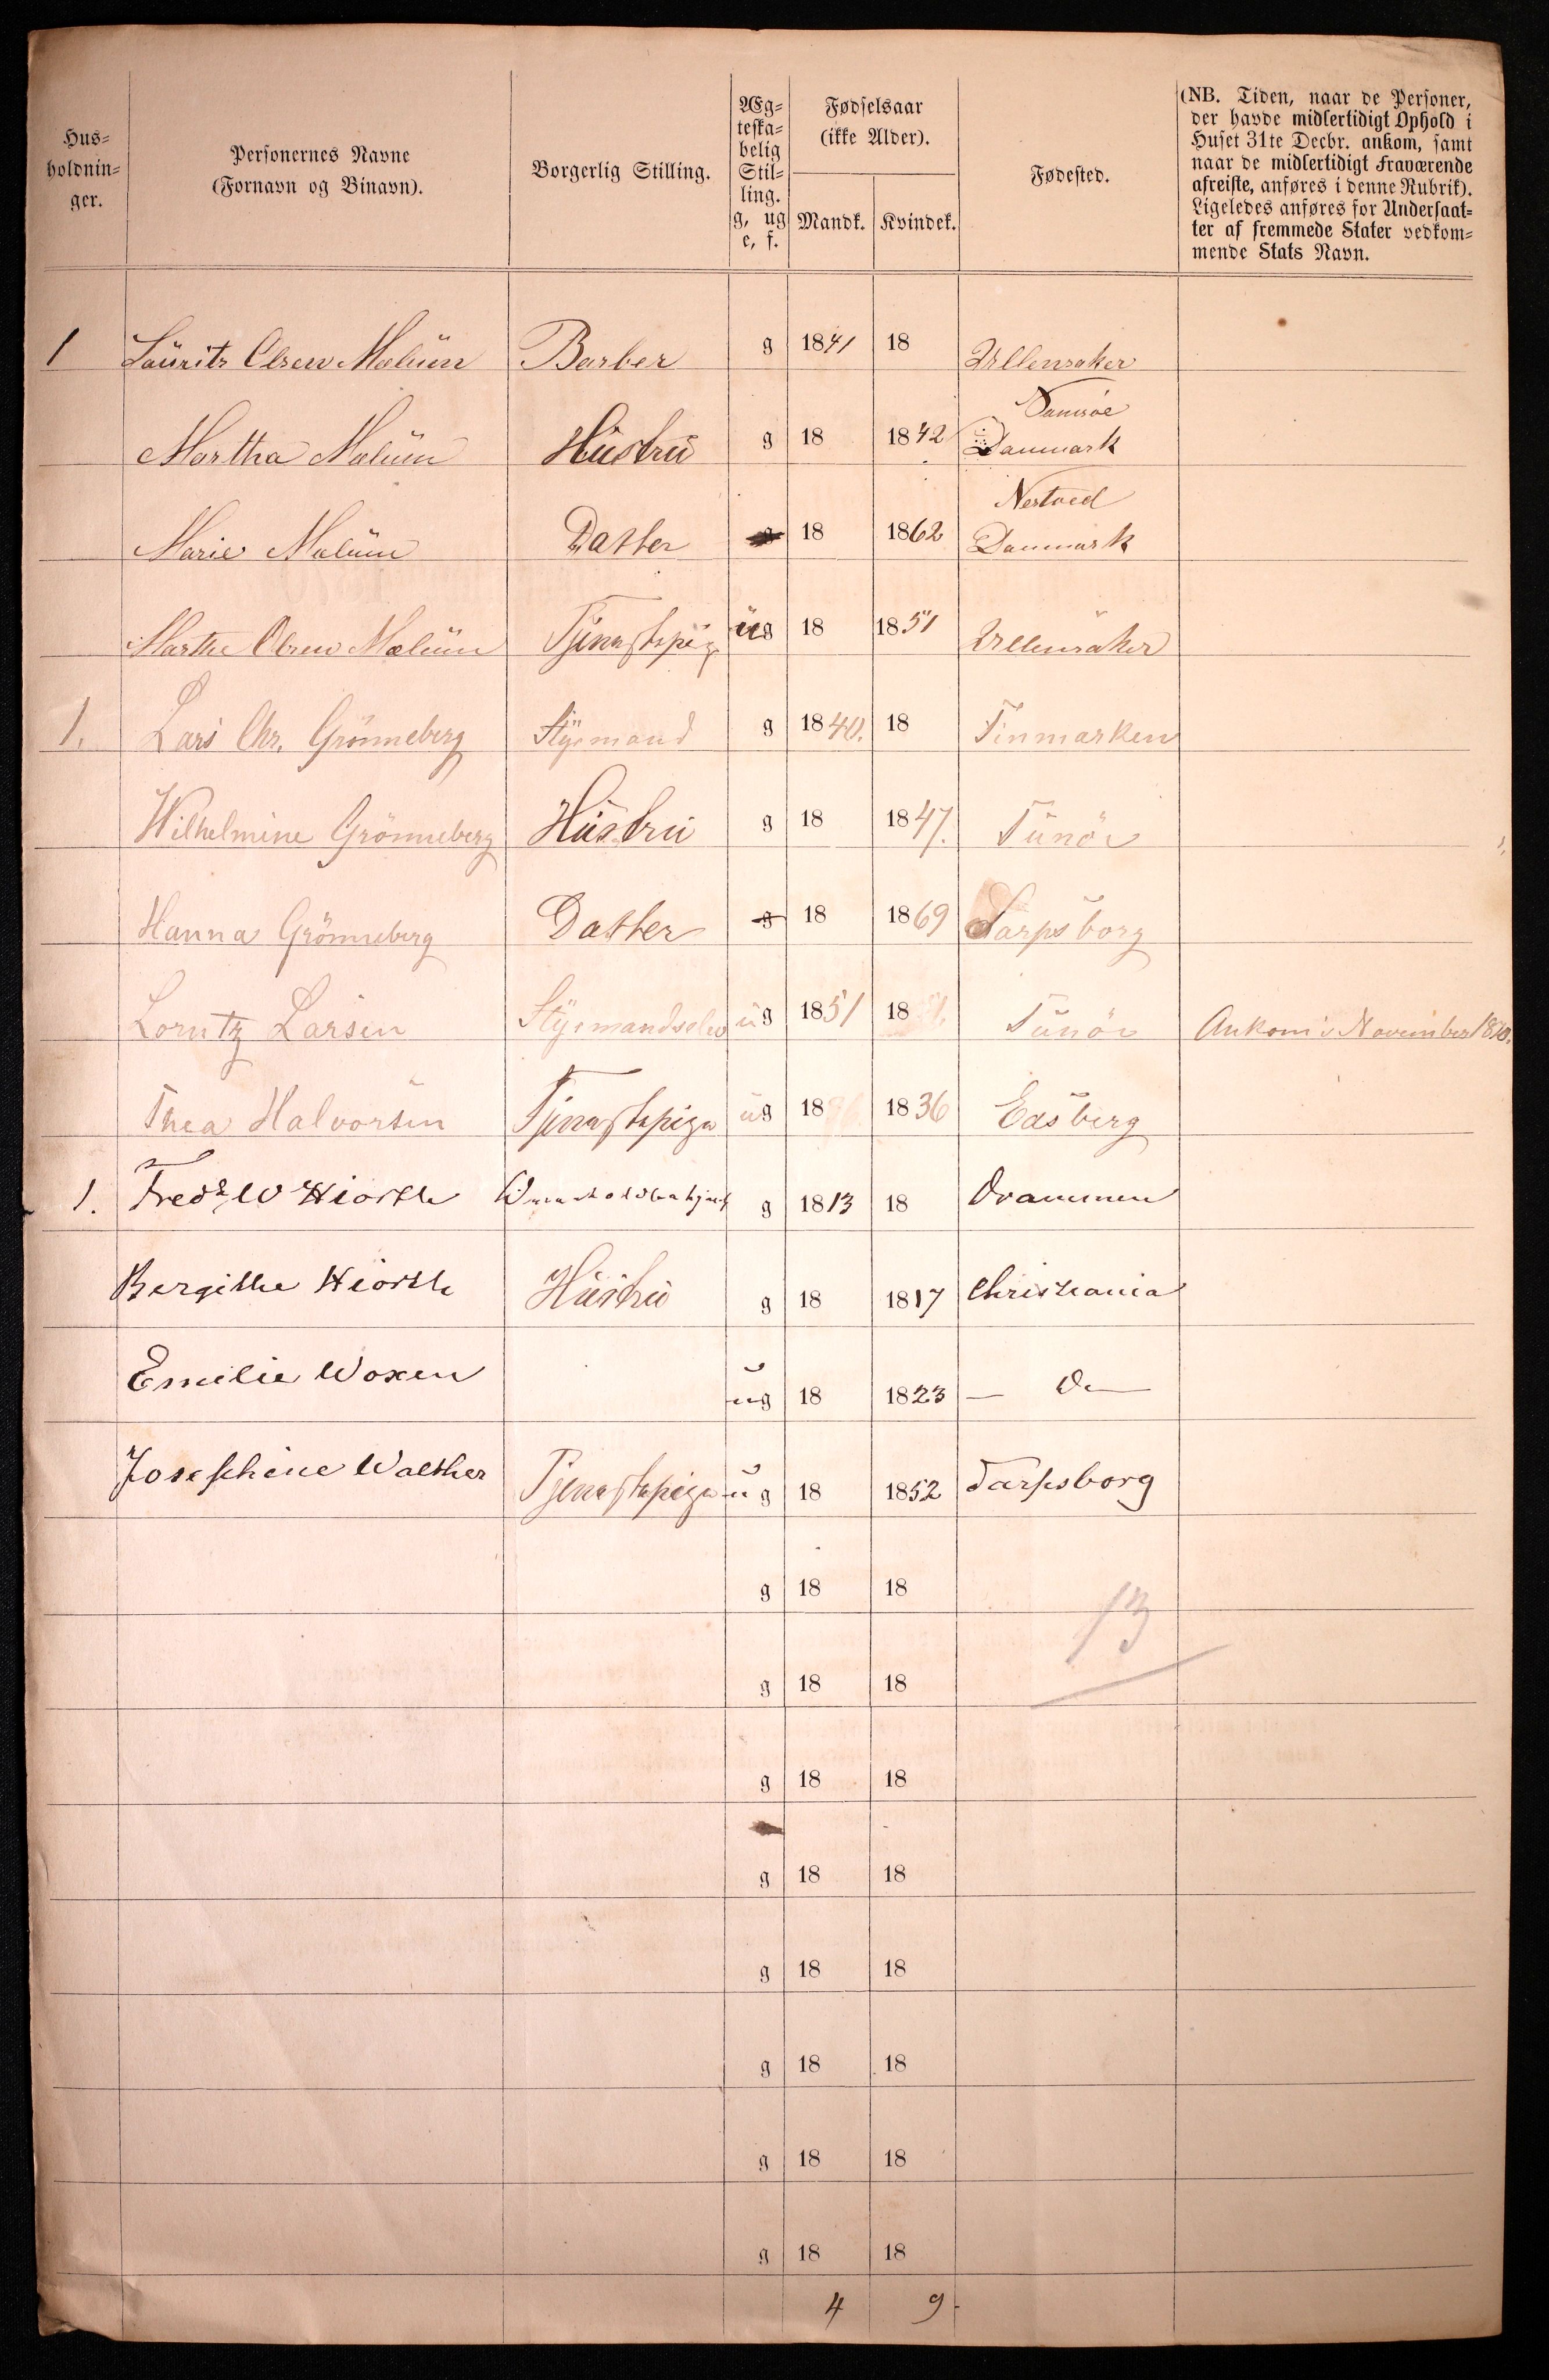 Hus-
holdnin-
ger.
Personernes Navne
(Fornavn og Binavn).
Borgerlig Stilling.
Æg-
teska-
belig
Stil-
ling.
g, ug
e, f.
Fødselsaar
(ikke Alder).
Mandk. Kvindek.
Fødested.
(NB. Tiden, naar de Personer,
der havde midlertidigt Ophold i
Huset 31te Decbr. ankom, samt
naar de midlertidigt Fraværende
afreiste, anføres i denne Rubrik).
Ligeledes anføres for Undersaat-
ter af fremmede Stater vedkom-
mende Stats Navn.
1 Laurits Olsen Malum Barber g 1841 18 Ullensaker
Martha Malum Hustru g 18 1842 Samsøe Danmark
Marie Malum Datter g 18 1862 Nestved Danmark
Marthe Olsen Malum Tjenestepig ug 18 1851 Ullensaker
1. Lars Chr. Grönneberg Styrmand g 1840. 18 Finmarken
Wilhelmine Grönneberg Hustru g 18 1847. Tunör
Hanna Grönneberg Datter g 18 1869 Sarpsborg
Lorntz Larsen Styrmandselev ug 1851 18 Tunör Ankom i November 1870.
Thea Halvorsen Tjenestepige ug 18 1836 Edsberg
1. Fredk W Hiorth g 1813 18 Drammen
Bergithe Hiorth Hustru g 18 1817 Christiania
Emilie Woxen ug 18 1823 — Do —
Josephine Walther Tjenestepige ug 18 1852 Sarpsborg
g 18 18
13
g 18 18
g 18 18
g 18 18
g 18 18
g 18 18
g 18 18
g 18 18
4 9